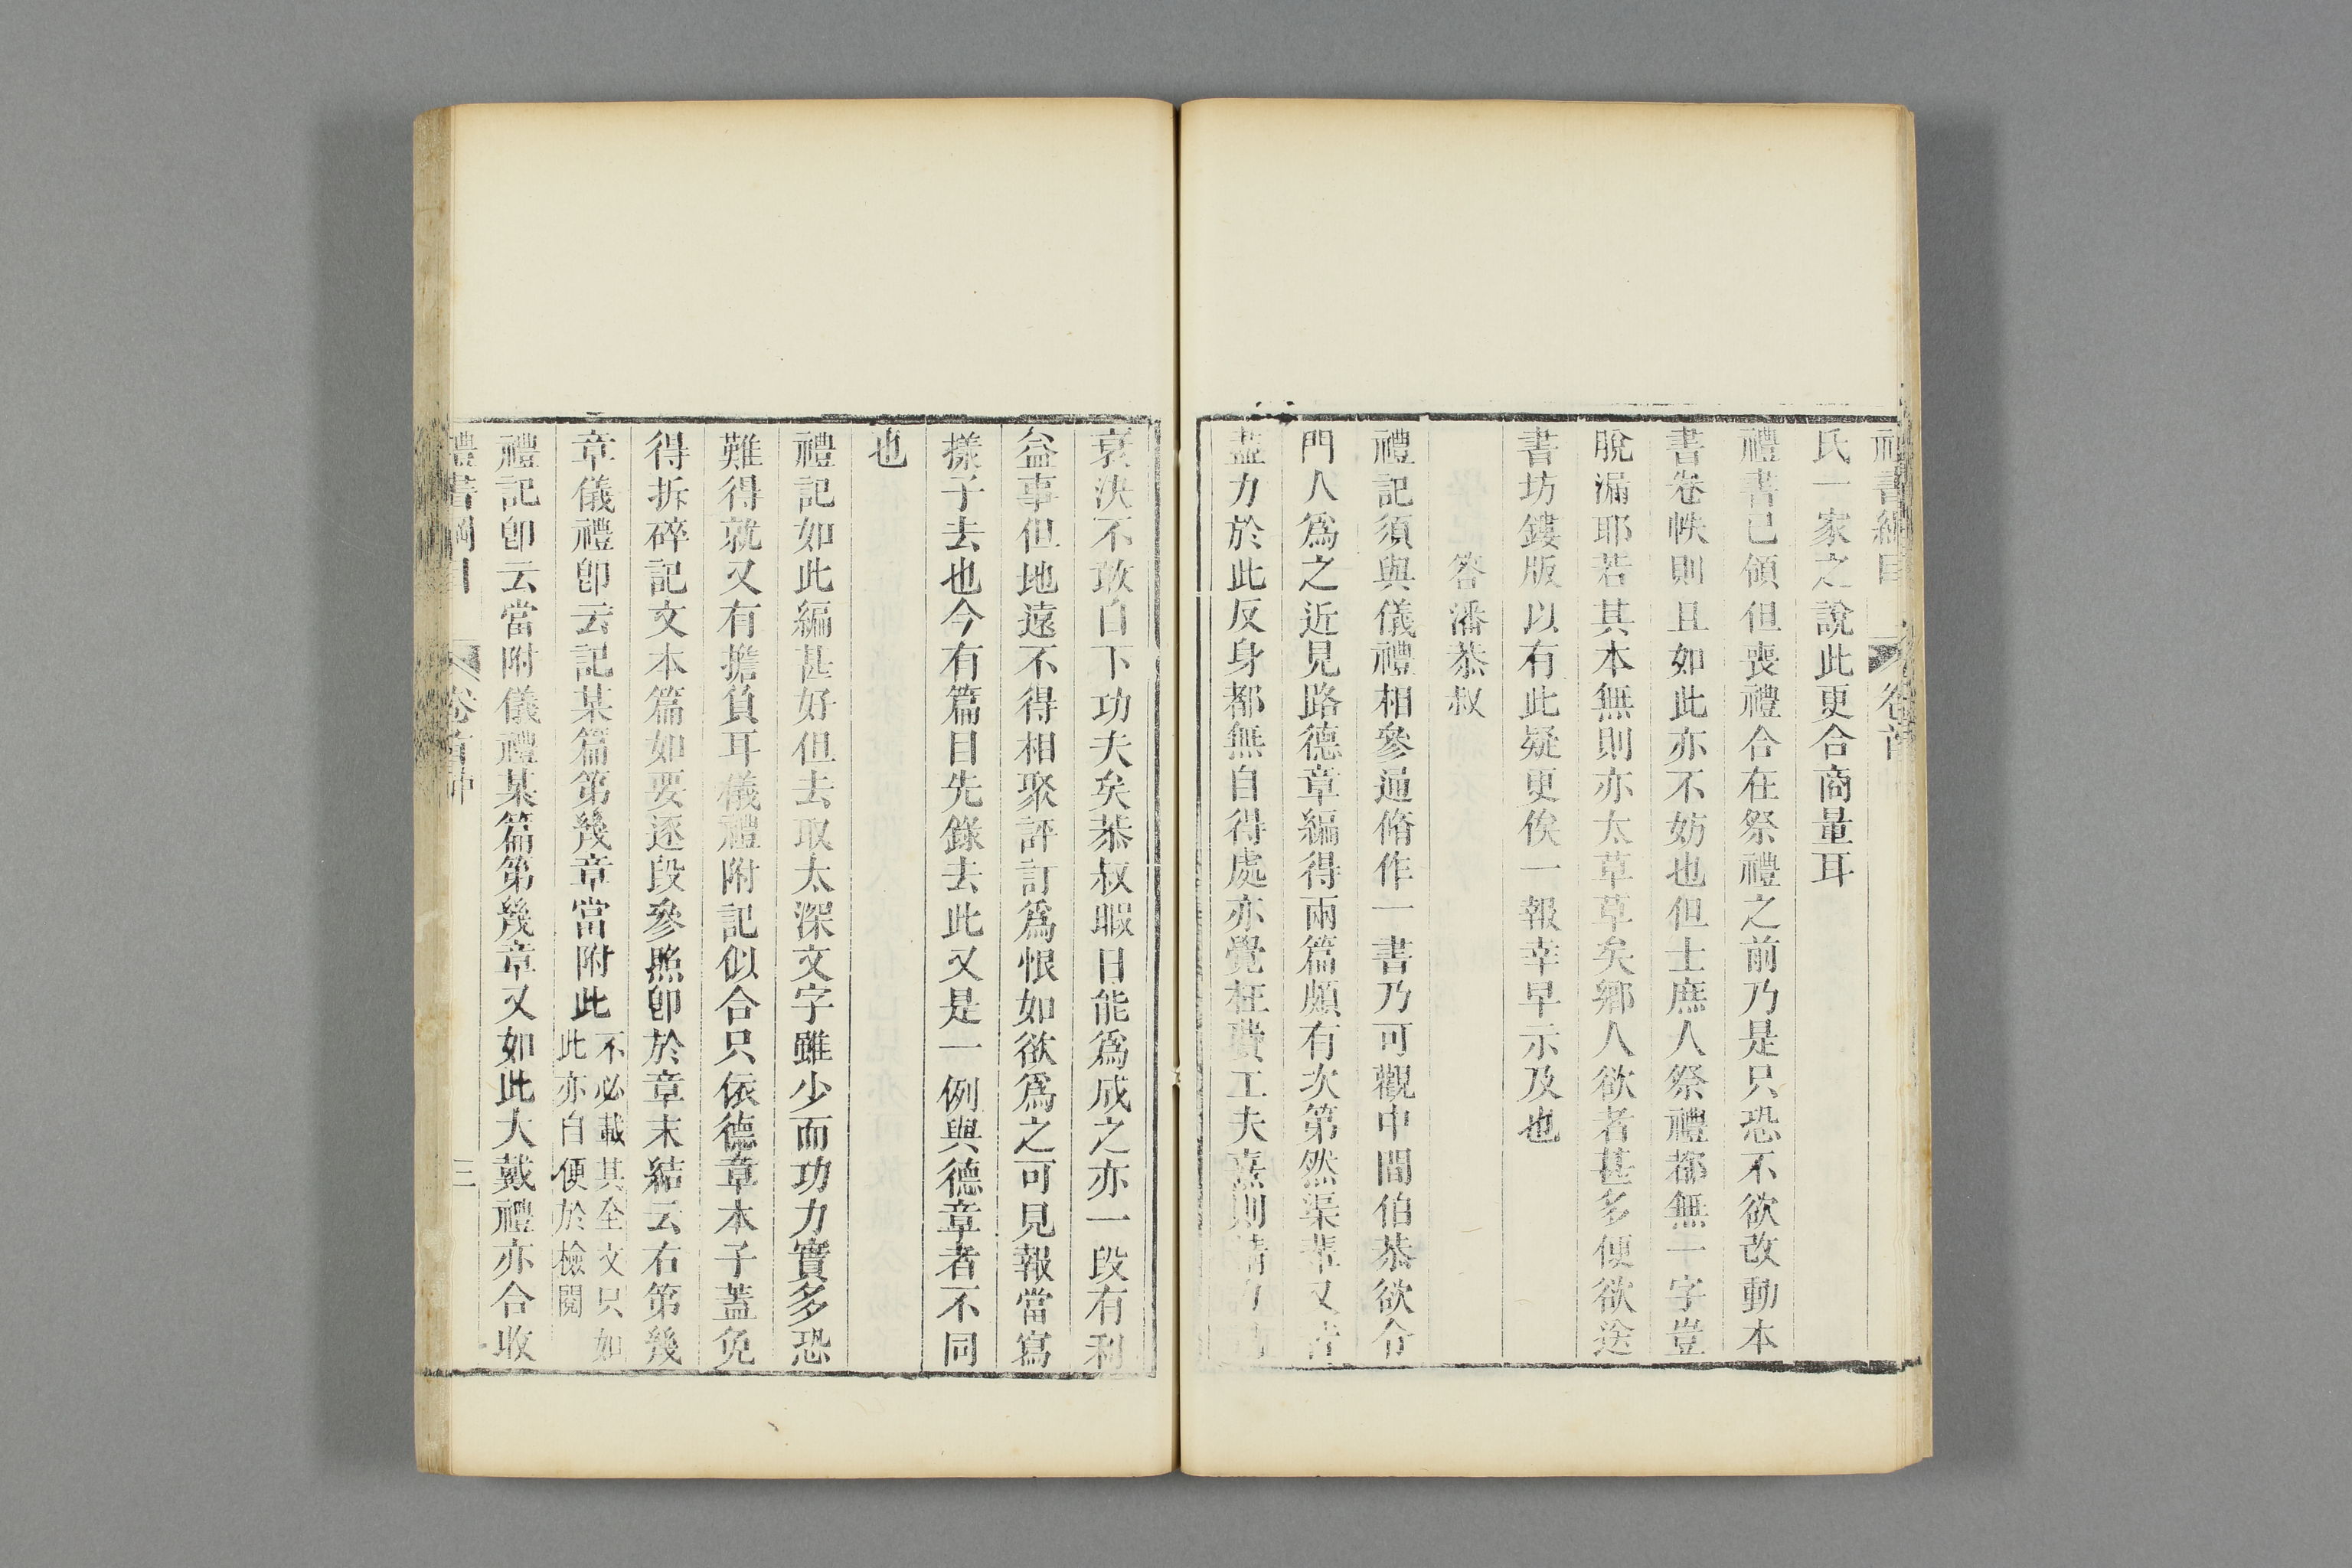 禮書綱目 卷首
氏一家之說此更合商量耳
禮書已領但喪禮合在祭禮之前乃是只恐不欲改動本
書卷帙則且如此亦不妨也但士庶人祭禮都無一字豈
脫漏耶若其本無則亦太草草矣鄉人欲者甚多便欲送
書坊鏤版以有此疑更俟一報幸早示及也
答潘恭叔
禮記須與儀禮相參通脩作一書乃可觀中間伯恭欲令
門人爲之近見路德章編得兩篇頗有次第然渠輩又苦
盡力於此反身都無自得處亦覺枉費工夫熹則精力
衰決不敢自下功夫矣恭叔暇日能爲成之亦一段有利
益事但地遠不得相聚評訂爲恨如欲爲之可見報當寫
㨾子去也今有篇目先錄去此又是一例與德章者不同
也
禮記如此編甚好但去取太深文字雖少而功力實多恐
難得就又有擔負耳儀禮附記似合只依德章本子蓋免
得拆碎記文本篇如要逐段參照卽於章末結云右第幾
章儀禮卽云記某篇第幾章當附此不必載其全文只如此亦自便於檢閱
禮記卽云當附儀禮某篇第幾章又如此大戴禮亦合收
禮書綱目 卷首中 三